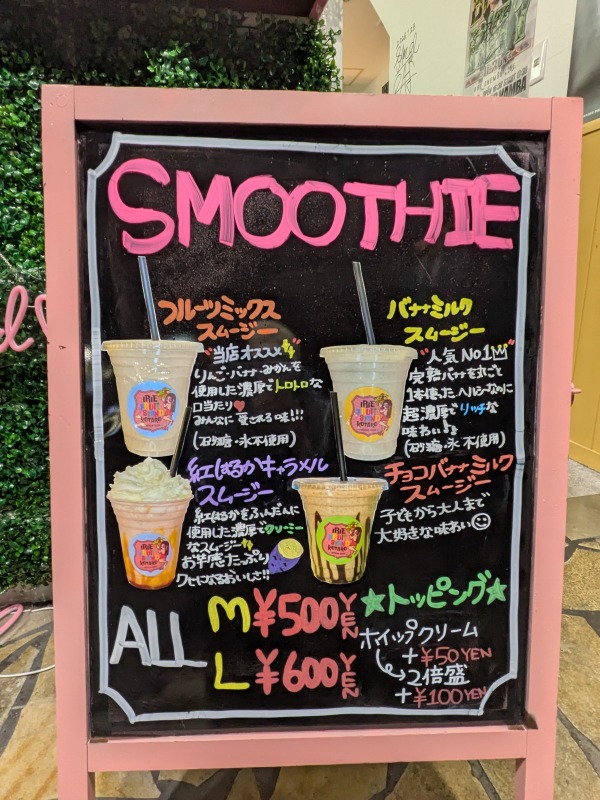 SMOOTHIE
フルーツミックス
スムージー
"当店オススメ"
りんご・バナナ・みかんを
使用した濃厚でトロトロな
口当たり♥
みんなに愛される味!!!
(砂糖・氷不使用)
バナナミルク
スムージー
"人気No.1"
完熟バナナを丸ごと
1本使った、ヘルシーなのに
超濃厚でリッチな
味わい♪
(砂糖・氷不使用)
紅はるかキャラメル
スムージー
紅はるかをふんだんに
使用した濃厚でクリーミー
なスムージー
お芋感たっぷり
クセになるおいしさ!!
チョコバナナミルク
スムージー
子どもから大人まで
大好きな味わい☺
ALL
M ¥500YEN
L ¥600YEN
★トッピング★
ホイップクリーム
+¥50YEN
→2倍盛
+¥100YEN
IRIE
MAMBA